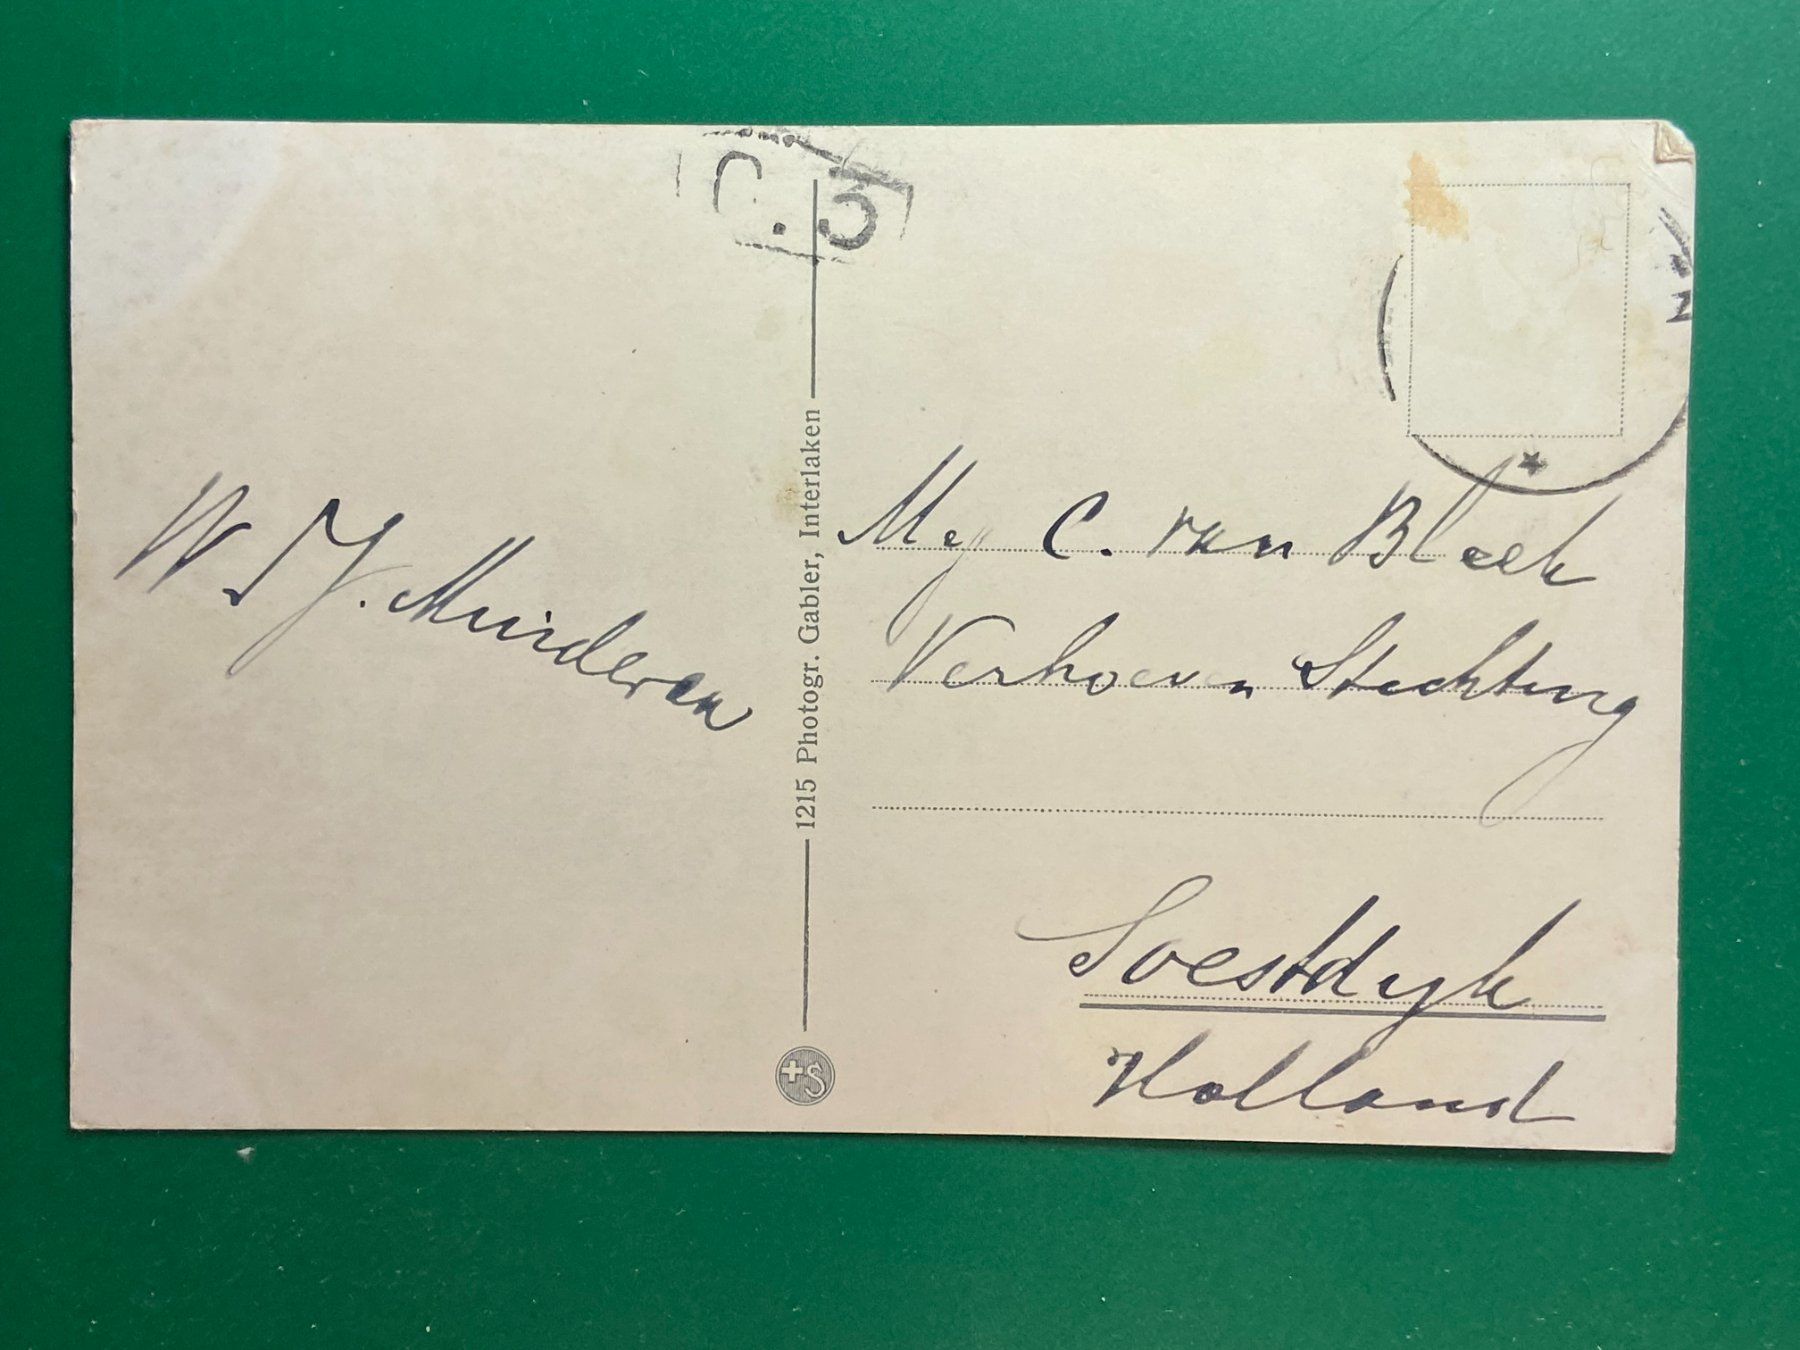 W J. Muinderen
Mej C. van Bleek
Verhoeven Stichting
Soestdyk
Holland
1215 Photogr. Gabler, Interlaken